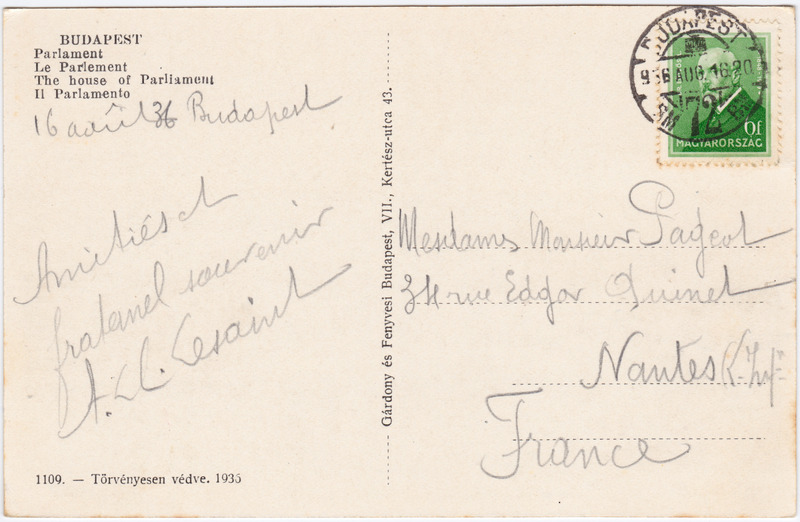 BUDAPEST
Parlament
Le Parlement
The house of Parliament
Il Parlamento
16 août 36 Budapest
Amitiés et
fraternel souvenir
A. Lesaint
1109. — Törvényesen védve. 1935
Gárdony és Fenyvesi Budapest, VII., Kertész-utca 43.
BUDAPEST
936 AUG. 16. 20
72
MAGYARORSZÁG
Mesdames Monsieur Pageot
34 rue Edgar Quinet
Nantes
France